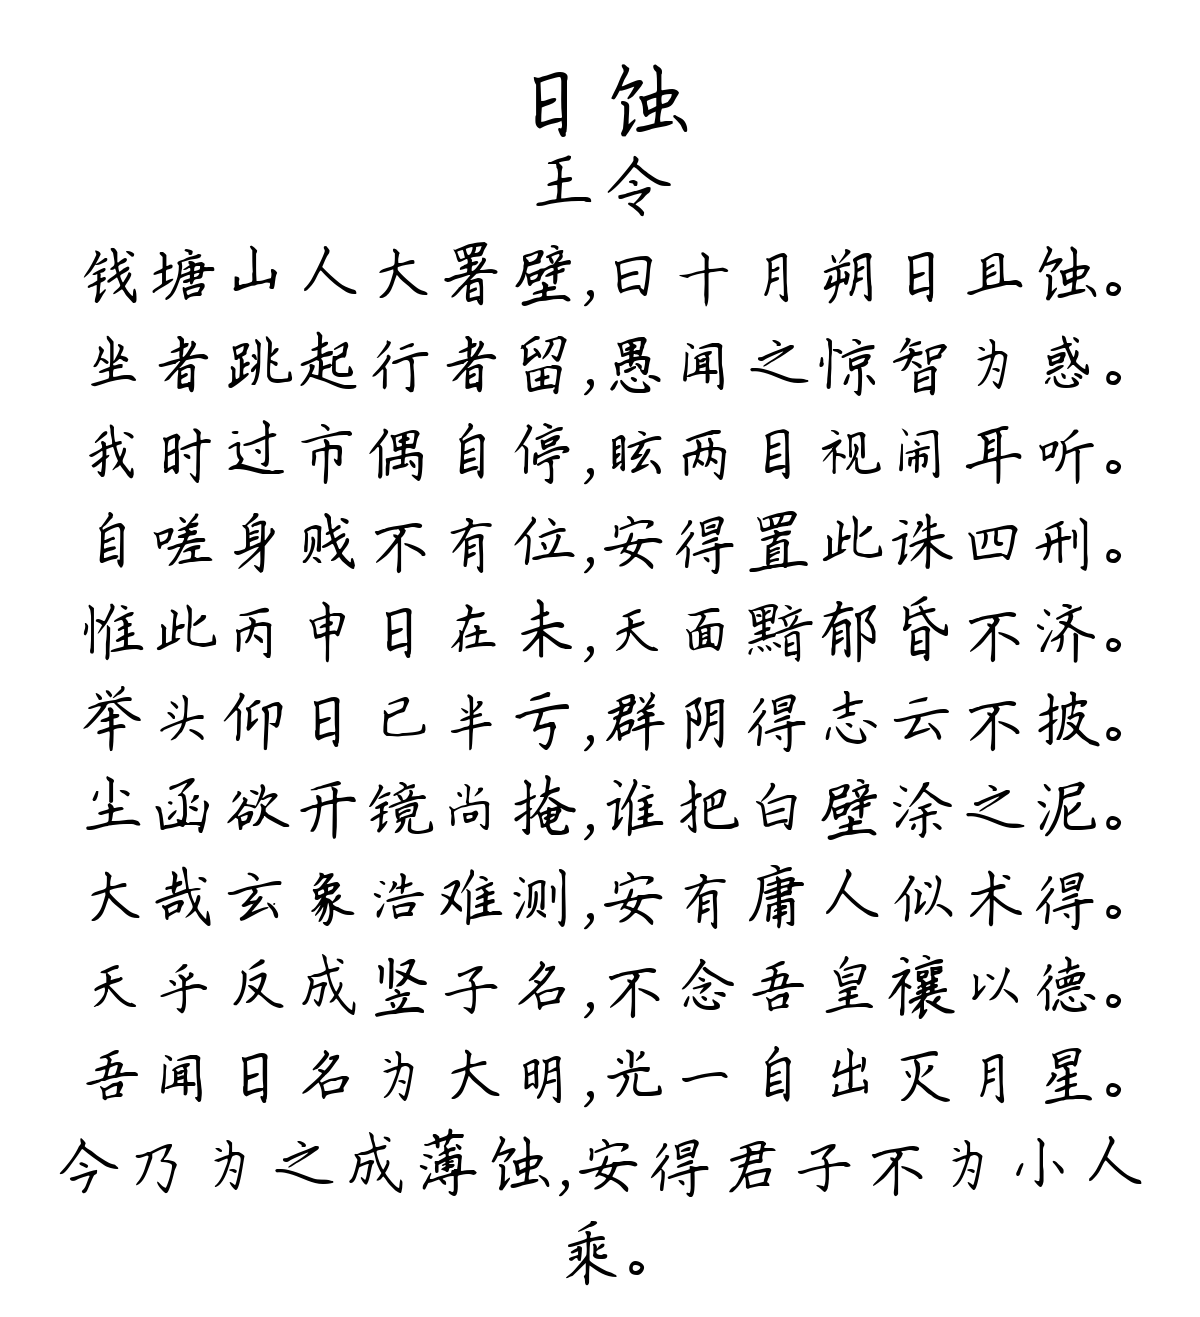 日蚀
王令
钱塘山人大署壁,曰十月朔日且蚀。
坐者跳起行者留,愚闻之惊智为惑。
我时过市偶自停,眩两目视闹耳听。
自嗟身贱不有位,安得置此诛四刑。
惟此丙申日在未,天面黯郁昏不济。
举头仰日已半亏,群阴得志云不披。
尘函欲开镜尚掩,谁把白壁涂之泥。
大哉玄象浩难测,安有庸人似术得。
天乎反成竖子名,不念吾皇禳以德。
吾闻日名为大明,光一自出灭月星。
今乃为之成薄蚀,安得君子不为小人
乘。